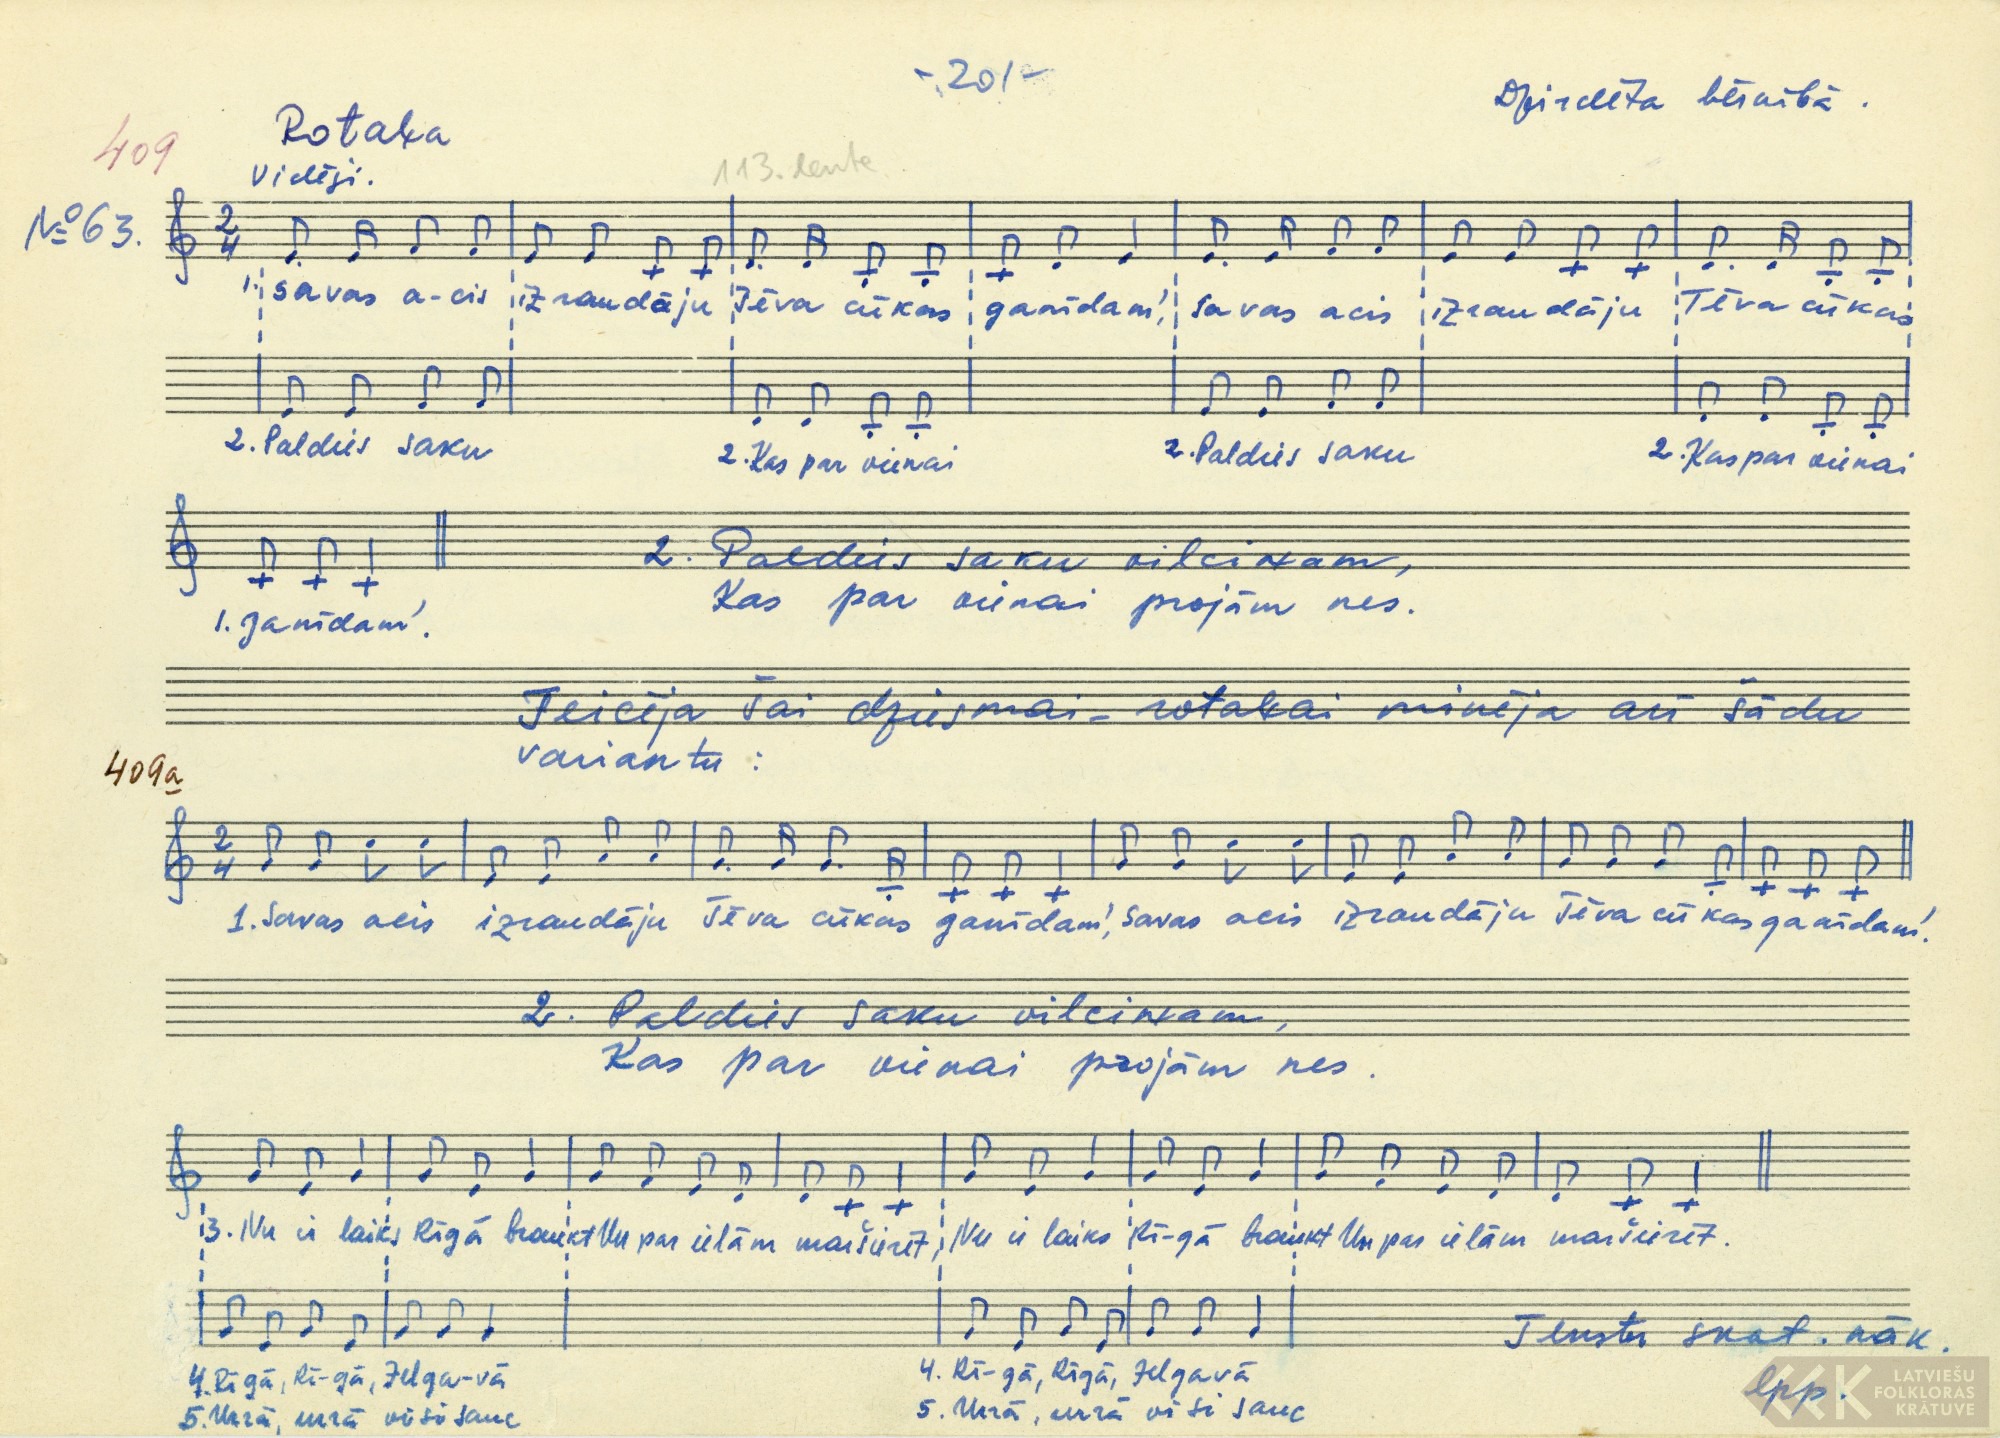 -201-
Dzirdēta bērnībā.
409
Rotaļa
Vidēji.
113. lente
№ 63.
2
4
1. Savas a-cis izraudāju Tēva cūkas ganīdam', savas acis izraudāju Tēva cūkas
2. Paldies saku 2. Kas par vienai 2. Paldies saku 2. Kas par vienai
2. Paldies saku vilciņam,
Kas par vienai projām nes.
1. ganīdam'.
Teicēja šai dziesmai-rotaļai minēja arī šādu
variantu:
409a
2
4
1. Savas acis izraudāju Tēva cūkas ganīdam', savas acis izraudāju Tēva cūkas ganīdam'.
2. Paldies saku vilciņam,
Kas par vienai projām nes.
3. Nu ir laiks Rīgā braukt Un par ielām maršierēt, Nu ir laiks Rī-gā braukt Un par ielām maršierēt.
Tekstu skat. nāk.
lpp.
4. Rīgā, Rī-gā, Jelga-vā 4. Rī-gā, Rīgā, Jelgavā
5. Urrā, urrā visi sauc 5. Urrā, urrā visi sauc
LATVIEŠU
FOLKLORAS
KRĀTUVE